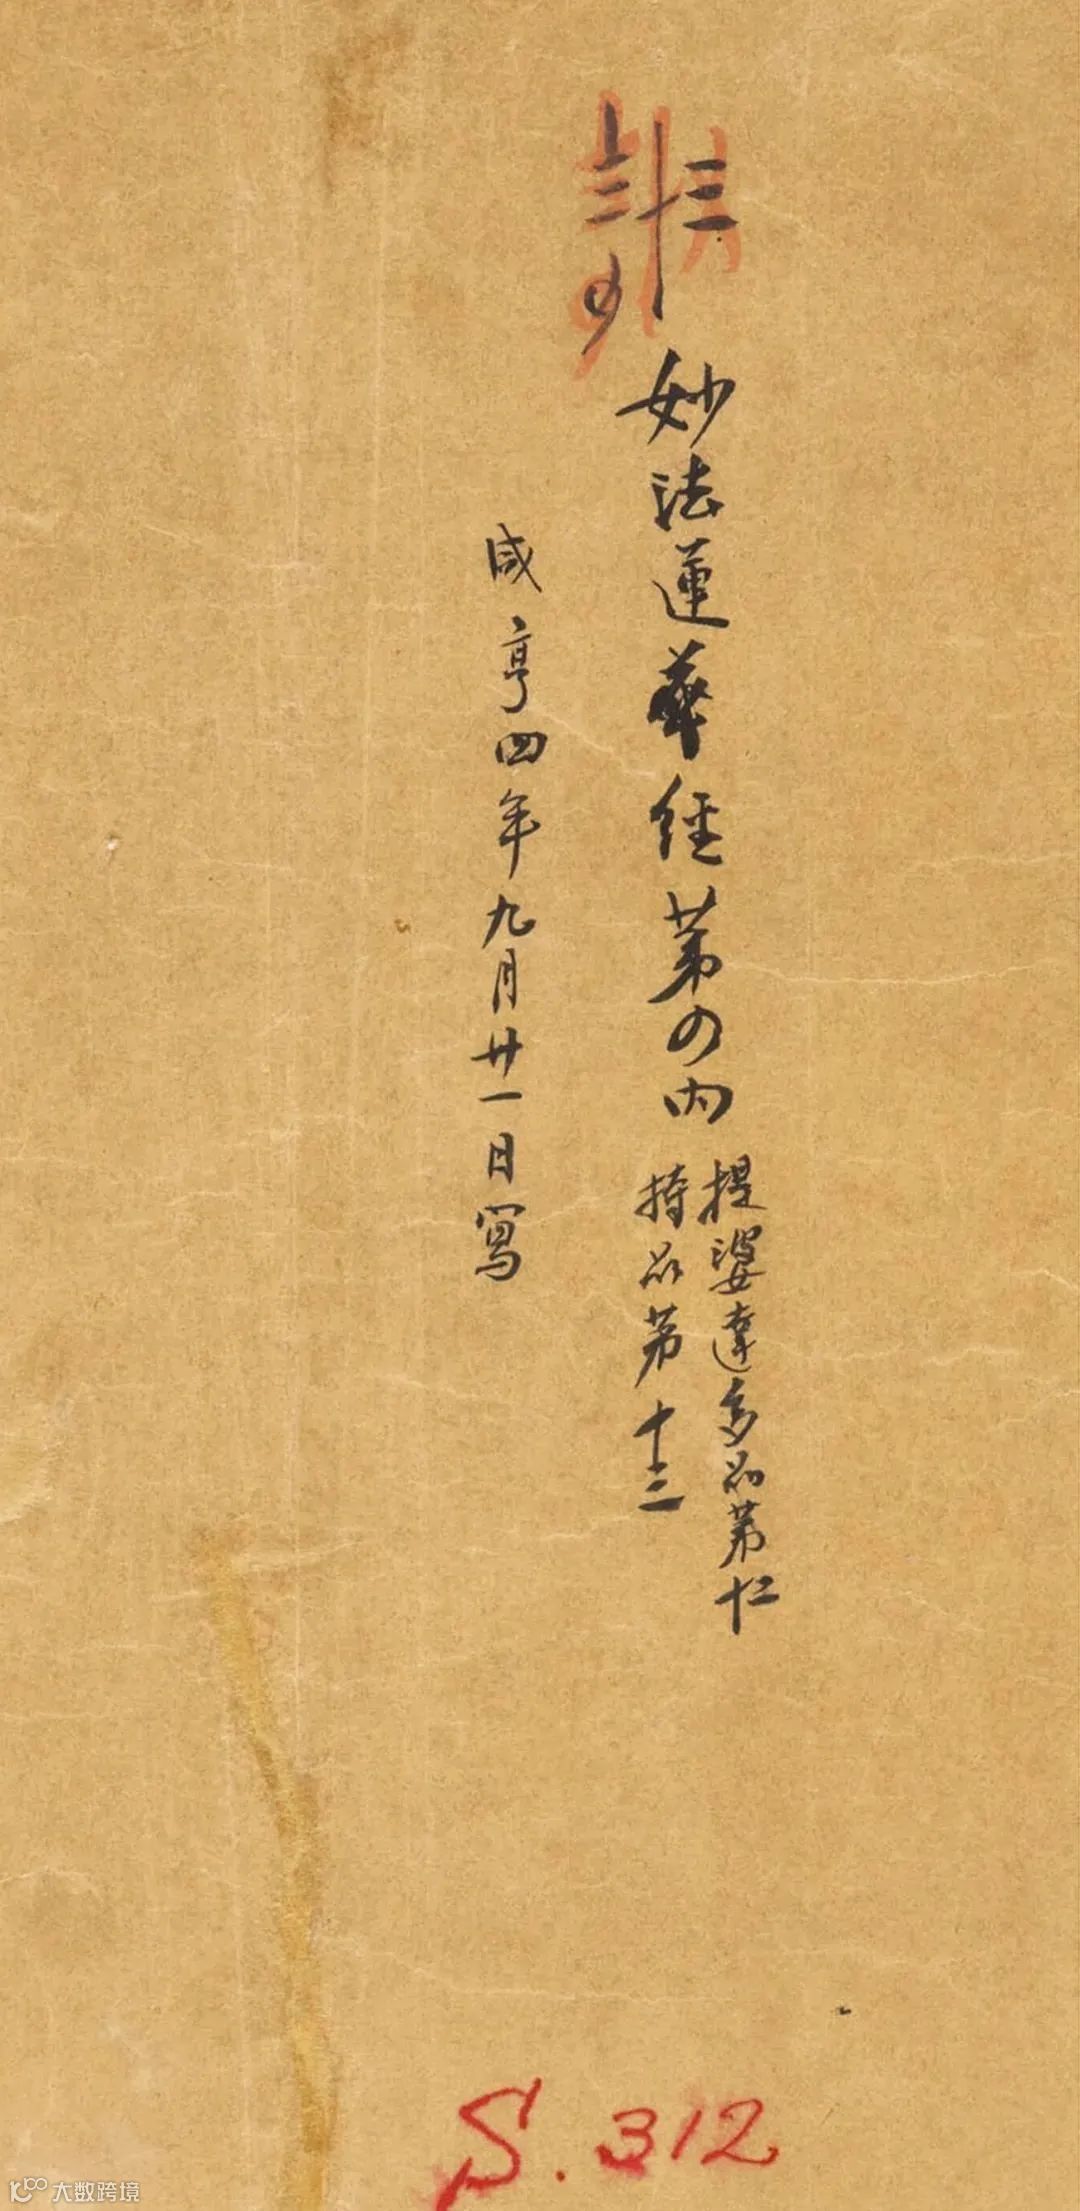 妙法蓮華經第四內
提婆達多品第十二
持品第十三
咸亨四年九月廿一日寫
S.312
大数跨境